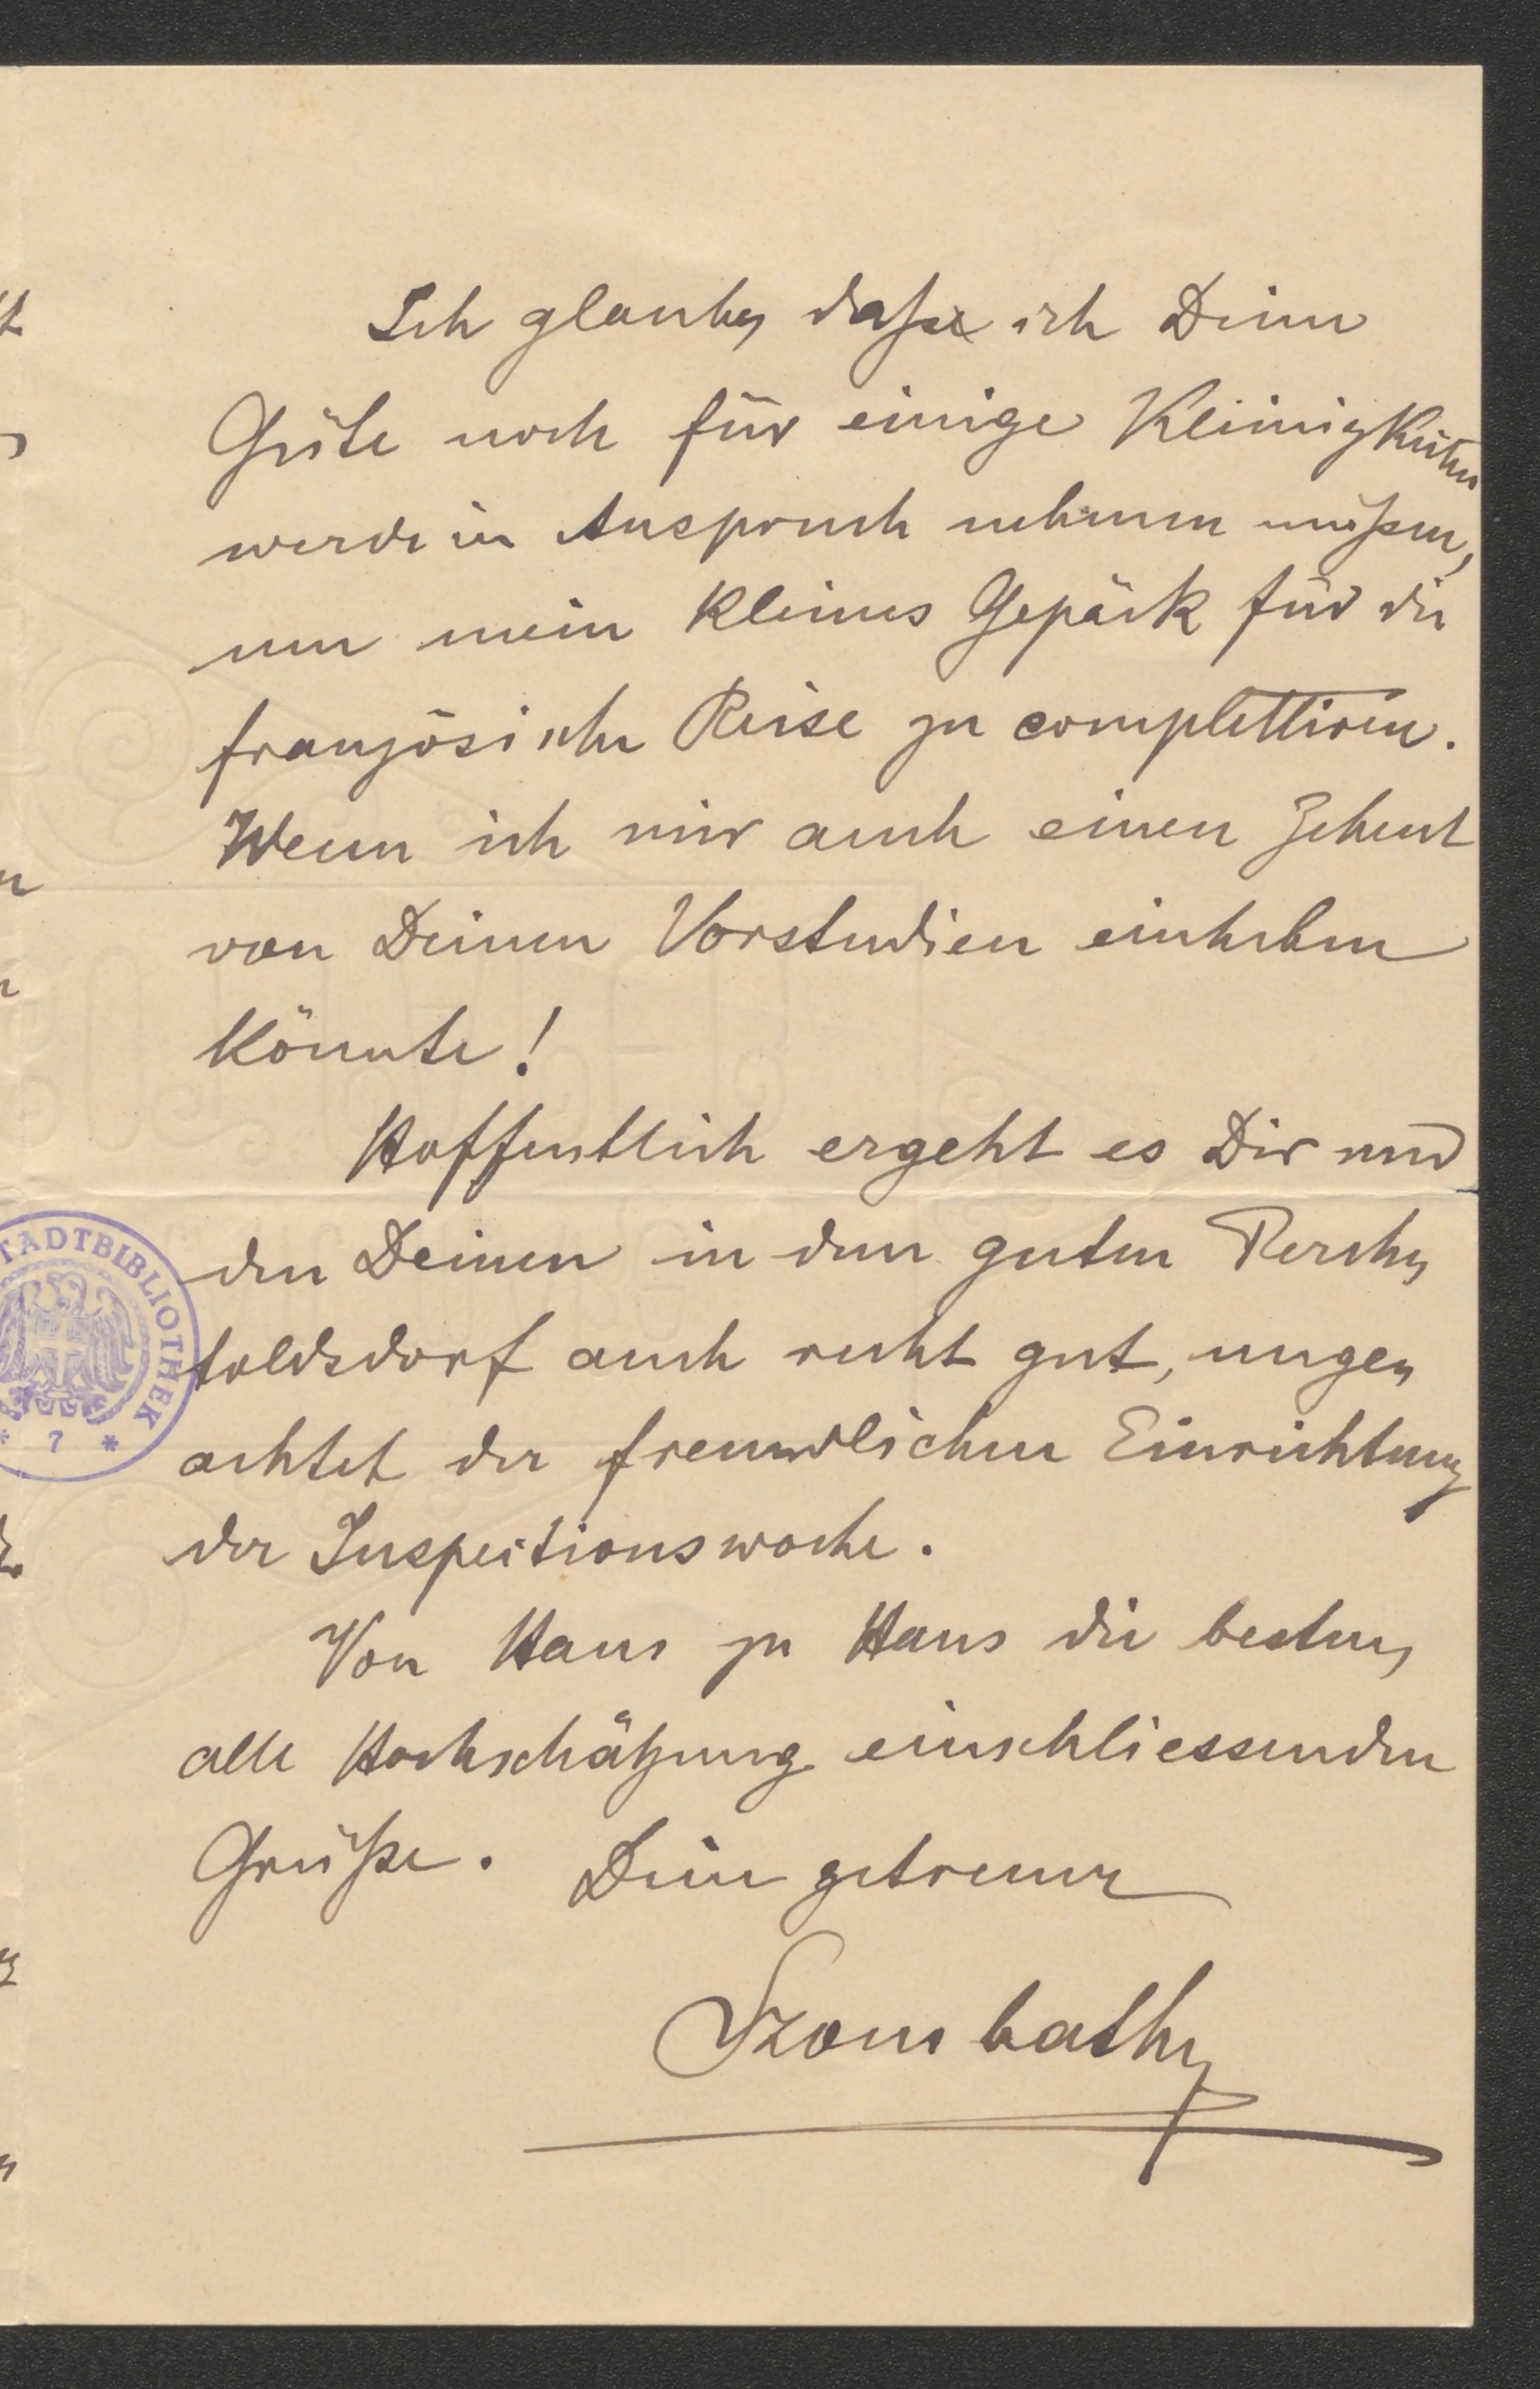 Ich glaube, daß ich Deine
Güte noch für einige Kleinigkeiten
werde in Anspruch nehmen müßen,
um mein kleines Gepäck für die
französische Reise zu complettiren.
Wenn ich mir auch einen Zehent
von Deinen Vorstudien einheben
könnte!
Hoffentlich ergeht es Dir und
den Deinen in dem guten Perch-
toldsdorf auch recht gut, unge-
achtet der freundlichen Einrichtung
der Inspectionswoche.
Von Haus zu Haus die besten,
alle Hochschätzung einschliessenden
Grüße. Dein getreuer
Szombathy
STADTBIBLIOTHEK
* 7 *